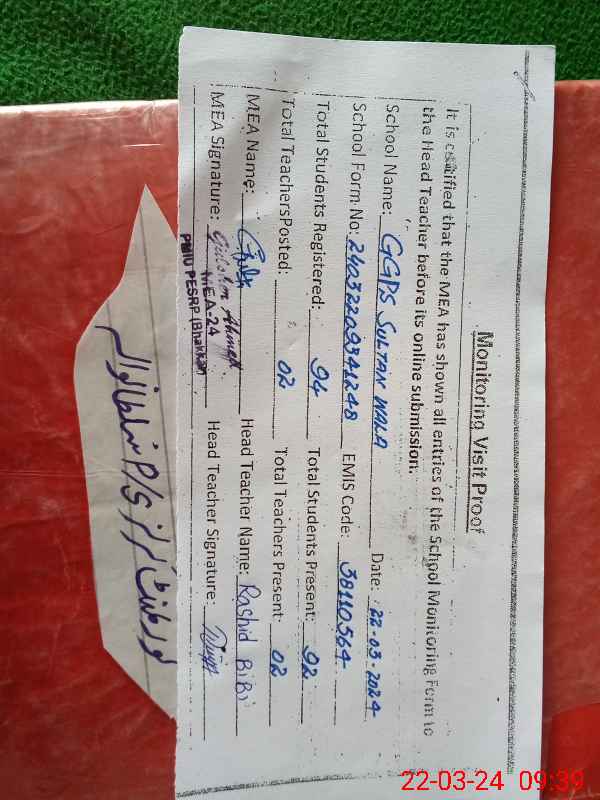 Monitoring Visit Proof
It is certified that the MEA has shown all entries of the School Monitoring Form to
the Head Teacher before its online submission.
School Name: GGPS SULTAN WALA Date: 22-03-2024
School Form No: 24032209341248 EMIS Code: 38110564
Total Students Registered: 94 Total Students Present: 92
Total TeachersPosted: 02 Total Teachers Present: 02
MEA Name: Head Teacher Name: Rashid BiBi
MEA Signature: Gulshan Ahmed Head Teacher Signature:
MEA-24
PMIU PESRP (Bhakkar)
گورنمنٹ گرلز P/S سلطانوالہ
22-03-24 09:39